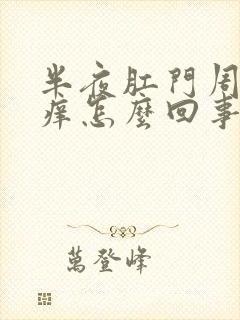 半夜肛門周
痒怎麼回事
萬登峰